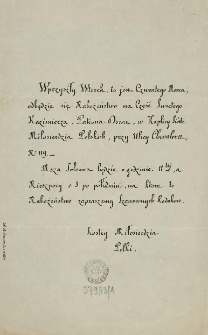 W przyszły Wtorek, to jest Czwartego Marca,
odbędzie się Nabożeństwo na Cześć Świętego
Kazimierza, Patrona Polski, w Kaplicy Sióstr
Miłosierdzia Polskich, przy Ulicy Chevaleret
N° 119.
Msza Śpiewana będzie o godzinie 11½, a
Nieszpory o 3 po południu, na które to
Nabożeństwo zapraszamy Szanownych Rodaków.
Siostry Miłosierdzia
Polki.